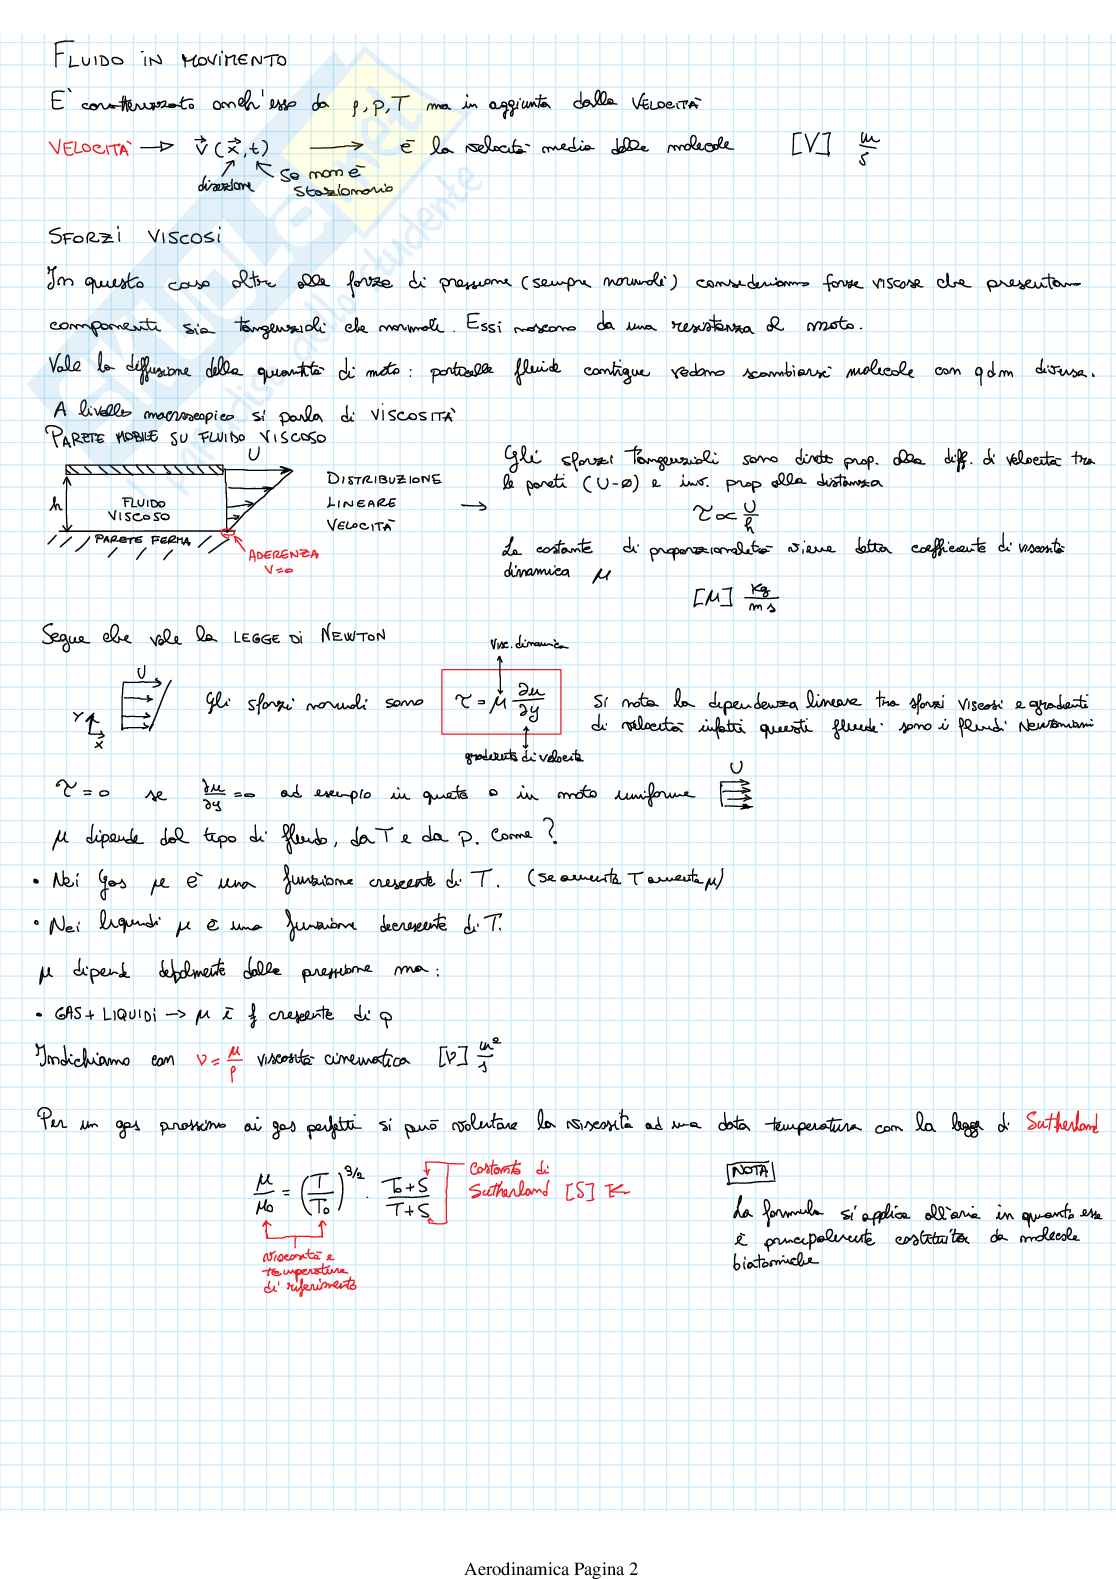 FLUIDO IN MOVIMENTO
E' caratterizzato anch'esso da ρ, p, T ma in aggiunta dalla VELOCITÀ
VELOCITÀ → v⃗(x⃗,t) → è la velocità media delle molecole [V] m/s
direzione se non è
stazionario
SFORZI VISCOSI
In questo caso oltre alle forze di pressione (sempre normali) consideriamo forze viscose che presentano
componenti sia tangenziali che normali. Essi nascono da una resistenza al moto.
Vale la diffusione della quantità di moto: particelle fluide contigue vedono scambiarsi molecole con qdm diversa.
A livello macroscopico si parla di VISCOSITÀ
PARETE MOBILE SU FLUIDO VISCOSO
U
h
FLUIDO
VISCOSO
PARETE FERMA
ADERENZA
V=0
DISTRIBUZIONE
LINEARE
VELOCITÀ
→
Gli sforzi tangenziali sono dirett. prop. alla diff. di velocità tra
le pareti (U-0) e inv. prop alla distanza
τ ∝ U/h
La costante di proporzionalità viene detta coefficiente di viscosità
dinamica μ
[μ] kg/ms
Segue che vale la LEGGE DI NEWTON
Visc. dinamica
U
Y
X
Gli sforzi normali sono τ = μ ∂u/∂y
gradiente di velocità
Si nota la dipendenza lineare tra sforzi viscosi e gradienti
di velocità infatti questi fluidi sono i fluidi Newtoniani
τ = 0 se ∂u/∂y = 0 ad esempio in quiete o in moto uniforme U
μ dipende dal tipo di fluido, da T e da p. Come?
• Nei gas μ è una funzione crescente di T. (se aumenta T aumenta μ)
• Nei liquidi μ è una funzione decrescente di T.
μ dipende debolmente dalla pressione ma:
• GAS + LIQUIDI → μ è f crescente di p
Indichiamo con ν = μ/ρ viscosità cinematica [ν] m²/s
Per un gas prossimo ai gas perfetti si può valutare la viscosità ad una data temperatura con la legge di Sutherland
μ/μ₀ = (T/T₀)^3/2 · T₀+S/T+S
Costante di
Sutherland [S] K
viscosità e
temperatura
di riferimento
NOTA
La formula si applica all'aria in quanto essa
è principalmente costituita da molecole
biatomiche
Aerodinamica Pagina 2